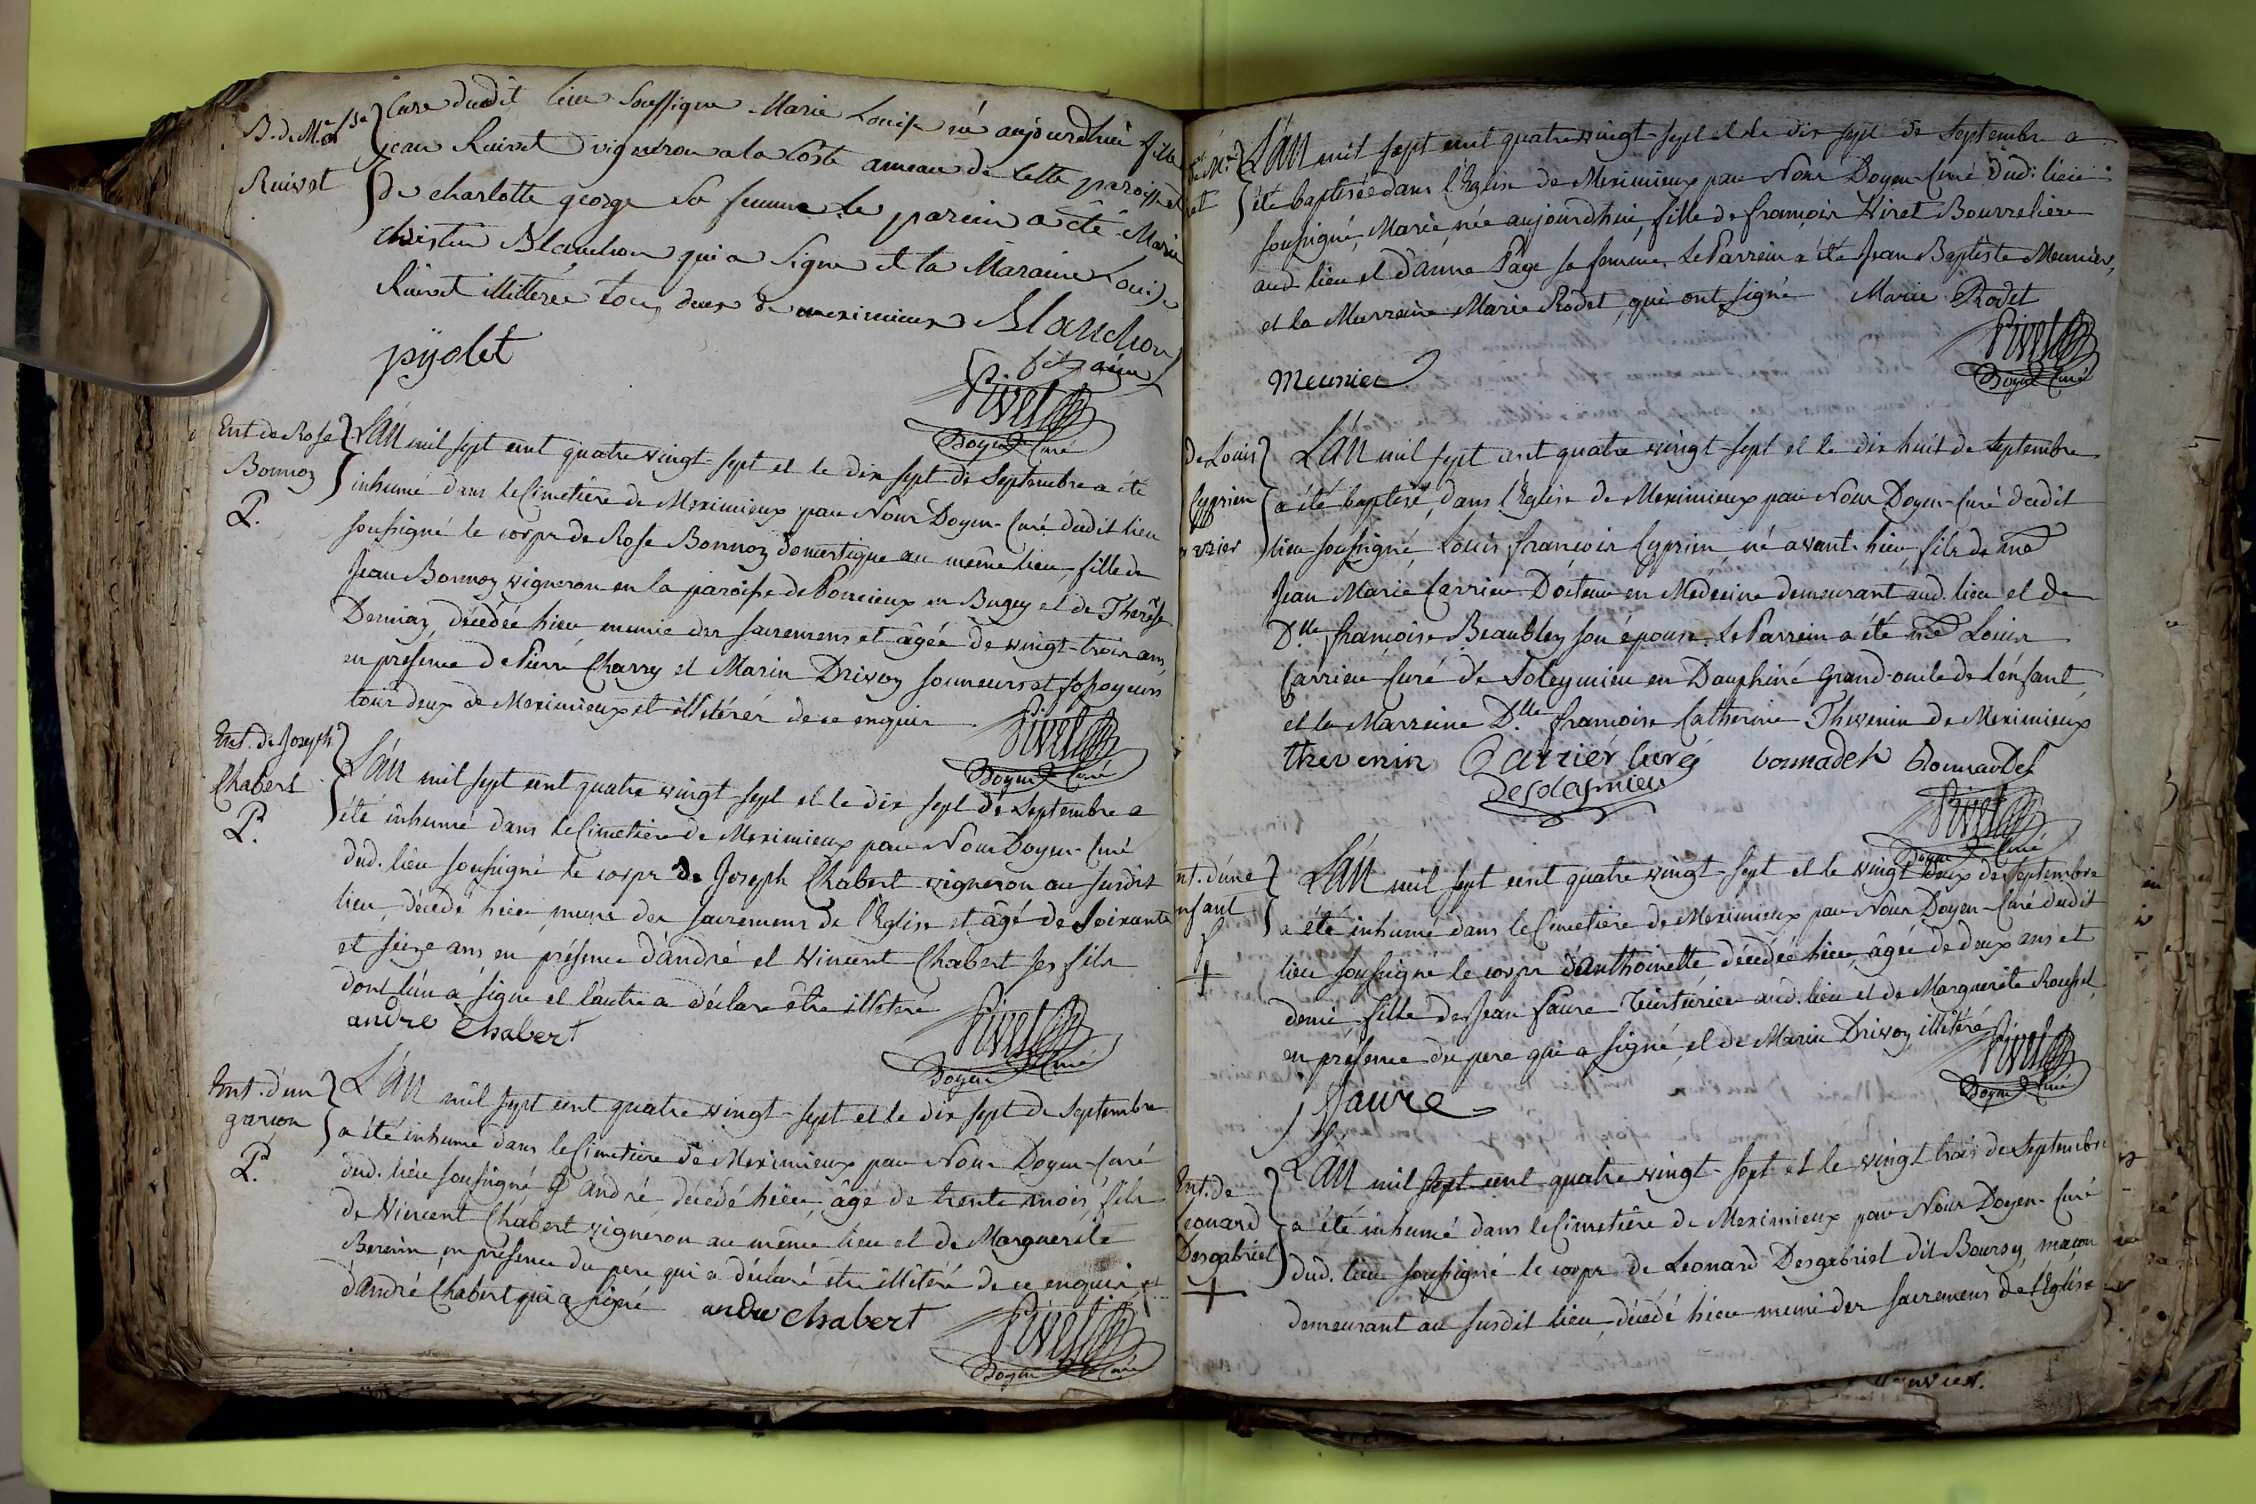 B. de M.e L.se
Ruivet
Cure dudit lieu Soussigne Marie Louise né aujourdhui fille
jean Ruivet vigneron a la Coste ameau de cette paroisse et
de charlotte george sa femme le parein a été Marie
Blanchon qui a Signe et la Maraine Louise
Ruivet illitterée tous deux de meximieux Blanchon
fils ainé
pijolet
Pivet
Doyen Curé
Ent. de Rose
Bonnoz
P.
L'an mil sept cent quatre vingt-sept et le dix sept de Septembre a été
inhumé dans le Cimetière de Meximieux par Nous Doyen-Curé dudit lieu
soussigné le corps de Rose Bonnoz domestique au même lieu, fille de
Jean Bonnoz vigneron en la paroisse de Poncieux en Bugey et de Therèse
Derniaz, décédée hier munie des sacremens et âgée de vingt-trois ans,
en présence de Pierre Charry et Marin Drivoz sonneurs et fossoyeurs
tous deux de Meximieux et illetérés de ce enquis
Pivet
Doyen Curé
Ent. de Joseph
Chabert
P.
L'an mil sept cent quatre vingt-sept et le dix sept de Septembre a
été inhumé dans le Cimetière de Meximieux par Nous Doyen-Curé
dud. lieu soussigné le corps de Joseph Chabert vigneron au susdit
lieu, décédé hier muni des sacremens de l'Eglise et âgé de Soixante
et seize ans en présence d'andré et Vincent Chabert ses fils
dont l'un a signé et l'autre a déclaré être illetéré
andre Chabert
Pivet
Doyen Curé
Ent. d'un
garçon
P.
L'an mil sept cent quatre vingt-sept et le dix sept de Septembre
a été inhumé dans le Cimetière de Meximieux par Nous Doyen-Curé
dud. lieu soussigné andré, décédé hier, âgé de trente mois, fils
de Vincent Chabert vigneron au même lieu et de Marguerite
en présence du pere qui a déclaré être illétéré de ce enquis et
d'andré Chabert qui a signé andre chabert
Pivet
Doyen Curé
de M.e
et
L'an mil sept cent quatre vingt-sept et le dix sept de Septembre a
été baptisée dans l'Eglise de Meximieux par Nous Doyen-Curé dud. lieu
soussigné, Marie, née aujourdhui, fille de françois Viret Bourrelier
aud. lieu et d'anne Page sa femme. Le Parrein a été Jean Baptiste Meunier,
et la Marreine Marie Rodet, qui ont signé Marie Rodet
Meunier
Pivet
Doyen Curé
de Louis
Cyprien
L'an mil sept cent quatre vingt-sept et le dix huit de Septembre
a été baptisé, dans l'Eglise de Meximieux par Nous Doyen-Curé dudit
lieu soussigné, Louis françois Cyprien né avant-hier, fils de
Jean Marie Carrier Docteur en Médecine demeurant aud. lieu et de
D.lle françoise Beaublez son épouse. Le Parrein a été Louis
Carrier Curé de Soleymieu en Dauphiné Grand-oncle de l'enfant
et la Marreine D.lle françoise Catherine Thevenin de Meximieux
thevenin Carrier curé
de soleymieu
Pivet
Doyen Curé
nt. d'une
nfant
L'an mil sept cent quatre vingt-sept et le vingt deux de Septembre
a été inhumé dans le Cimetière de Meximieux par Nous Doyen-Curé dudit
lieu soussigné le corps d'anthoinette décédée hier, âgée de deux ans et
demi, fille de Jean faure Teinturier aud. lieu et de Marguerite Rousset
en présence du pere qui a signé, et de Marin Drivoz illétéré
J faure
Pivet
Doyen Curé
Ent. de
Leonard
Desgabriel
L'an mil sept cent quatre vingt-sept et le vingt trois de Septembre
a été inhumé dans le Cimetière de Meximieux par Nous Doyen-Curé
dud. lieu soussigné le corps de Leonard Desgabriel dit Boursy, maçon
demeurant au susdit lieu, décédé hier muni des sacremens de l'Eglise